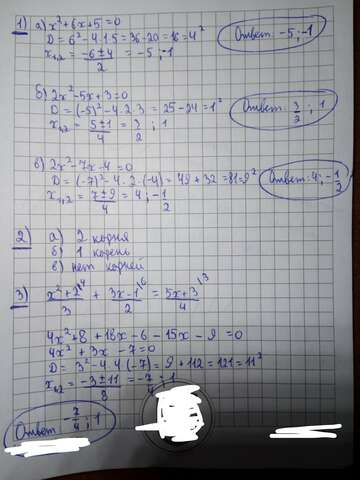 1) а) x²+6x+5=0
D = 6²-4·1·5=36-20=16=4²
x₁,₂ = (-6±4)/2 = -5; -1
Ответ: -5; -1
б) 2x²-5x+3=0
D = (-5)²-4·2·3=25-24=1²
x₁,₂ = (5±1)/4 = 3/2; 1
Ответ: 3/2; 1
в) 2x²-7x-4=0
D = (-7)²-4·2·(-4)=49+32=81=9²
x₁,₂ = (7±9)/4 = 4; -1/2
Ответ: 4; -1/2
2) а) 2 корня
б) 1 корень
в) нет корней
3) (x²+2)/3 \4 + (3x-1)/2 \6 = (5x+3)/4 \3
4x²+8+18x-6-15x-9=0
4x²+3x-7=0
D = 3²-4·4(-7)=9+112=121=11²
x₁,₂ = (-3±11)/8 = -7/4; 1
Ответ: -7/4; 1